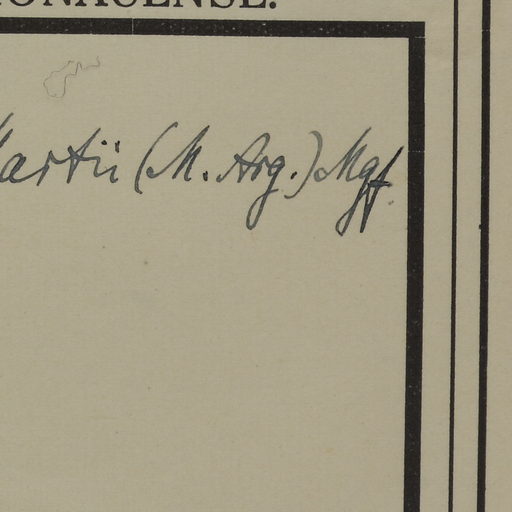 ONACENSE.
Martii (M. Arg.) Mgf.